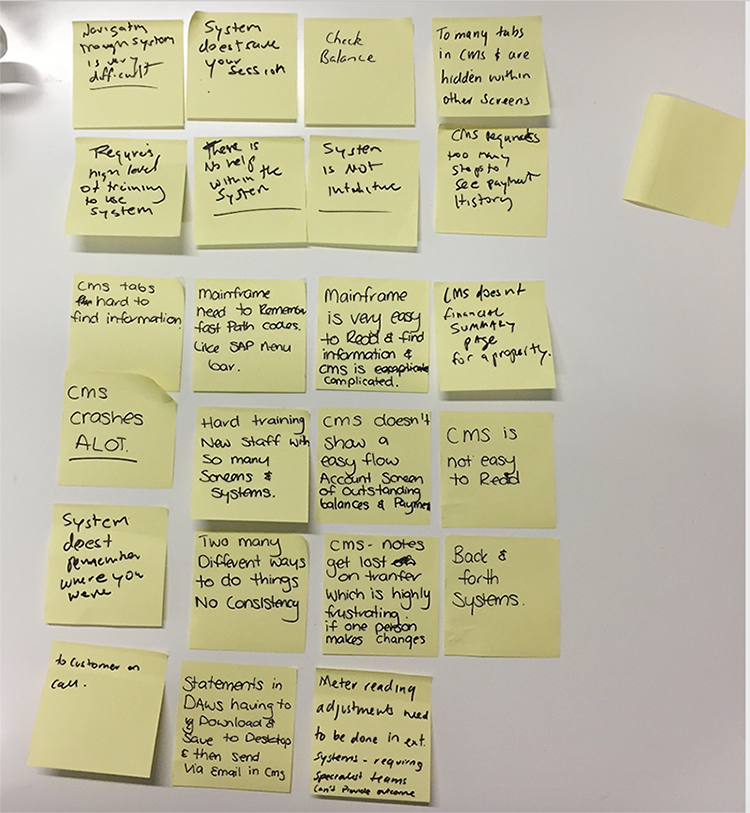 Navigating
through system
is very
difficult
System
does't save
your
session
Check
Balance
To many tabs
in CMS & are
hidden within
other screens
Requires
high level
of training
to use
system
There is
No help
within the
System
System
is Not
CMS requires
too many
steps to
see payment
History
CMS tabs
hard to
find information
Mainframe
need to Remember
fast Path codes.
Like SAP Menu
bar.
Mainframe
is very easy
to Read & find
information &
CMS is
complicated.
CMS doesn't
financial
SUMMARY
PAGE
for a property.
CMS
crashes
ALOT.
Hard training
New Staff with
So many
Screens &
Systems.
CMS doesn't
show a
easy flow
Account Screen
of outstanding
balances & Payment
CMS is
not easy
to Read
System
does't
remember
where you
were
Two many
Different ways
to do things
No Consistency
CMS - notes
get lost
on tranfer
which is highly
frustrating
if one person
makes changes
Back &
forth
Systems.
to customer on
call.
Statements in
DAWS having to
Download &
Save to Desktop
& then send
Via Email in CMS
Meter reading
adjustments need
to be done in ext.
Systems - requiring
specialist teams
Can't Provide outcome